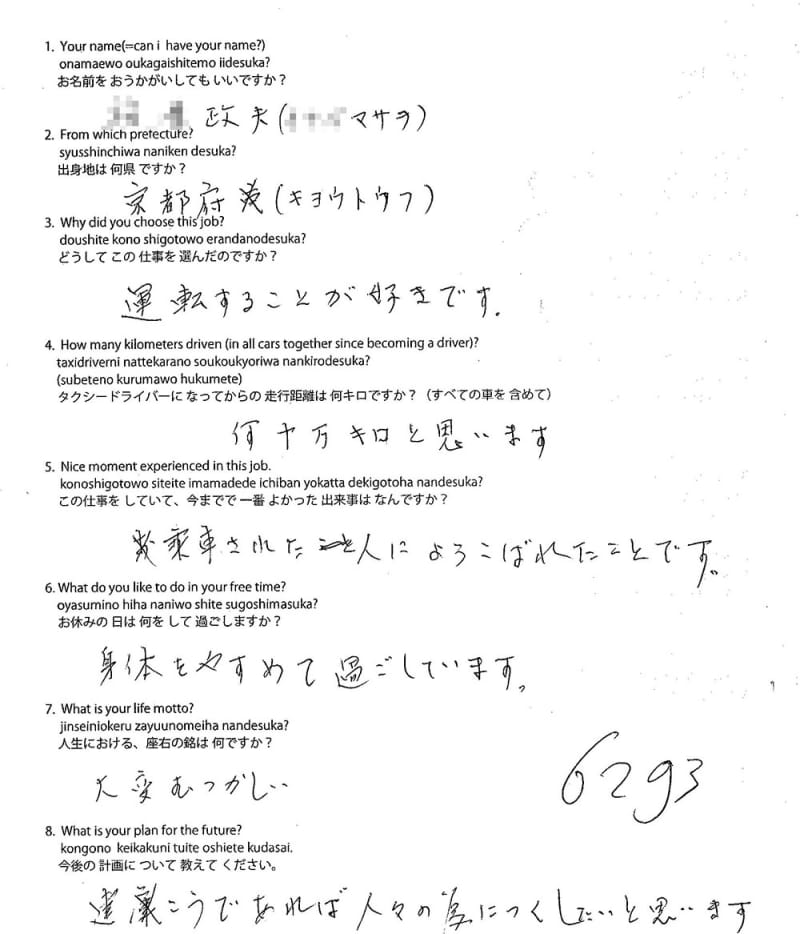 1. Your name(=can i have your name?)
onamaewo oukagaishitemo iidesuka?
お名前を おうかがいしても いいですか？
政夫(マサヲ)
2. From which prefecture?
syusshinchiwa naniken desuka?
出身地は 何県 ですか？
京都府(キョウトウフ)
3. Why did you choose this job?
doushite kono shigotowo erandanodesuka?
どうして この 仕事を 選んだのですか？
運転することが好きです.
4. How many kilometers driven (in all cars together since becoming a driver)?
taxidriverni nattekarano soukoukyoriwa nankirodesuka?
(subeteno kurumawo hukumete)
タクシードライバーに なってからの 走行距離は 何キロですか？（すべての車を 含めて）
何十万キロと思います
5. Nice moment experienced in this job.
konoshigotowo siteite imamadede ichiban yokatta dekigotoha nandesuka?
この仕事を していて、今までで 一番 よかった 出来事は なんですか？
乗車された人によろこばれたことです。
6. What do you like to do in your free time?
oyasumino hiha naniwo shite sugoshimasuka?
お休みの 日は 何を して 過ごしますか？
身体をやすめて過ごしています。
7. What is your life motto?
jinseiniokeru zayuunomeiha nandesuka?
人生における、座右の銘は 何ですか？
大変むつかしい
6293
8. What is your plan for the future?
kongono keikakuni tuite oshiete kudasai.
今後の 計画に ついて 教えて ください。
こうであれば人々の為につくしたいと思います